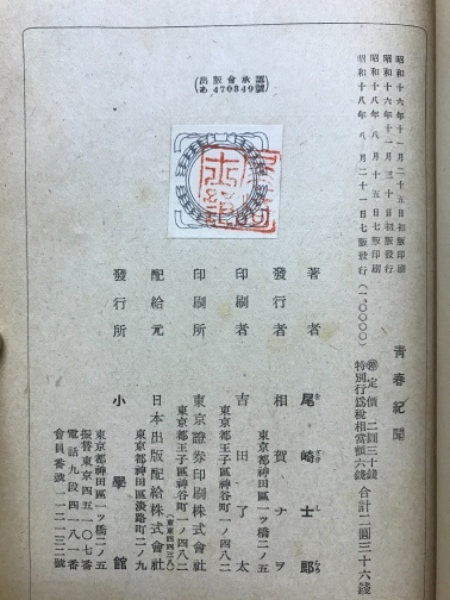 昭和十六年十一月二十五日初版印刷
昭和十六年十一月三十日初版發行
昭和十八年八月十五日七版印刷
昭和十八年八月二十一日七版發行（一、〇〇〇〇）
青春紀聞
㊞定價二圓三十錢
特別行爲稅相當額六錢
合計二圓三十六錢
著者 尾崎士郎
發行者 相賀ナヲ
東京都神田區一ツ橋二ノ五
印刷者 吉田了太
東京都王子區神谷町一ノ四八二
印刷所 東京證券印刷株式會社
東京都王子區神谷町一ノ四八二
（東東四四三八）
配給元 日本出版配給株式會社
東京都神田區淡路町二ノ九
發行所 小學館
東京都神田區一ツ橋二ノ五
振替東京四五一〇七番
電話九段四一八一番
會員番號一一二一三二號
（出版會承認
あ470349號）